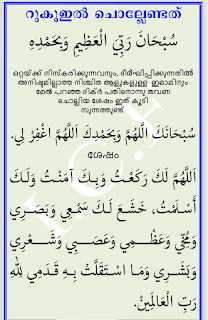 റുകൂഇൽ ചൊല്ലേണ്ടത്
سُبْحَانَ رَبِّيَ الْعَظِيمِ وَبِحَمْدِهِ
ഒറ്റയ്ക്ക് നിസ്കരിക്കുന്നവനും, ദീർഘിപ്പിക്കുന്നതിൽ
അനിഷ്ടമില്ലാത്ത നിശ്ചിത ആളുകളുള്ള ഇമാമിനും
മേൽ പറഞ്ഞ ദിക്ർ പതിനൊന്നു തവണ
ചൊല്ലിയ ശേഷം ഇത് കൂടി
സുന്നത്തുണ്ട്.
سُبْحَانَكَ اللَّهُمَّ وَبِحَمْدِكَ اللَّهُمَّ اغْفِرْ لِي.
ശേഷം
اَللَّهُمَّ لَكَ رَكَعْتُ وَبِكَ آمَنْتُ وَلَكَ
أَسْلَمْتُ، خَشَعَ لَكَ سَمْعِي وَبَصَرِي
وَمُخِّي وَعَظْمِي وَعَصَبِي وَشَعْرِي
وَبَشَرِي وَمَا اسْتَقَلَّتْ بِهِ قَدَمِي لِلّٰهِ
رَبِّ الْعَالَمِينَ.